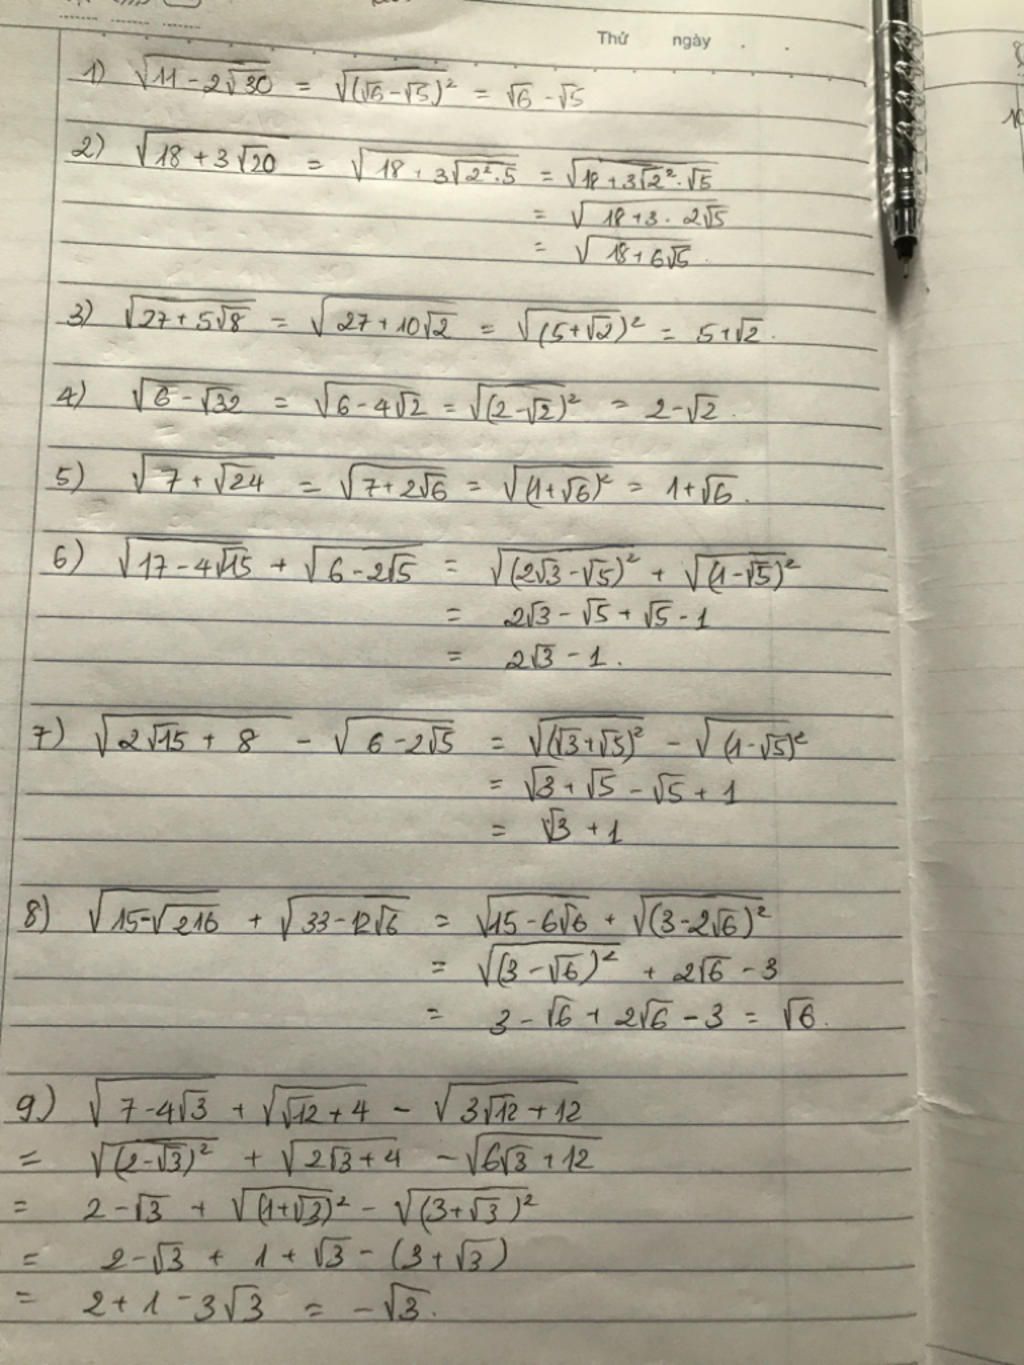 Thứ ngày
1) √(11 - 2√30) = √((√6 - √5)²) = √6 - √5
2) √(18 + 3√20) = √(18 + 3√(2².5)) = √(18 + 3√2².√5)
= √(18 + 3 . 2√5)
= √(18 + 6√5).
3) √(27 + 5√8) = √(27 + 10√2) = √((5+√2)²) = 5+√2.
4) √(6 - √32) = √(6 - 4√2) = √((2-√2)²) = 2-√2.
5) √(7 + √24) = √(7 + 2√6) = √((1+√6)²) = 1+√6.
6) √(17 - 4√15) + √(6 - 2√5) = √((2√3 - √5)²) + √((1-√5)²)
= 2√3 - √5 + √5 - 1
= 2√3 - 1.
7) √(2√15 + 8) - √(6 - 2√5) = √((√3+√5)²) - √((1-√5)²)
= √3 + √5 - √5 + 1
= √3 + 1
8) √(15 - √216) + √(33 - 12√6) = √(15 - 6√6) + √((3 - 2√6)²)
= √((3 - √6)²) + 2√6 - 3
= 3 - √6 + 2√6 - 3 = √6.
9) √(7 - 4√3) + √(√12 + 4) - √(3√12 + 12)
= √((2-√3)²) + √(2√3 + 4) - √(6√3 + 12)
= 2 - √3 + √((1+√3)²) - √((3+√3)²)
= 2 - √3 + 1 + √3 - (3 + √3)
= 2 + 1 - 3√3 = -√3.